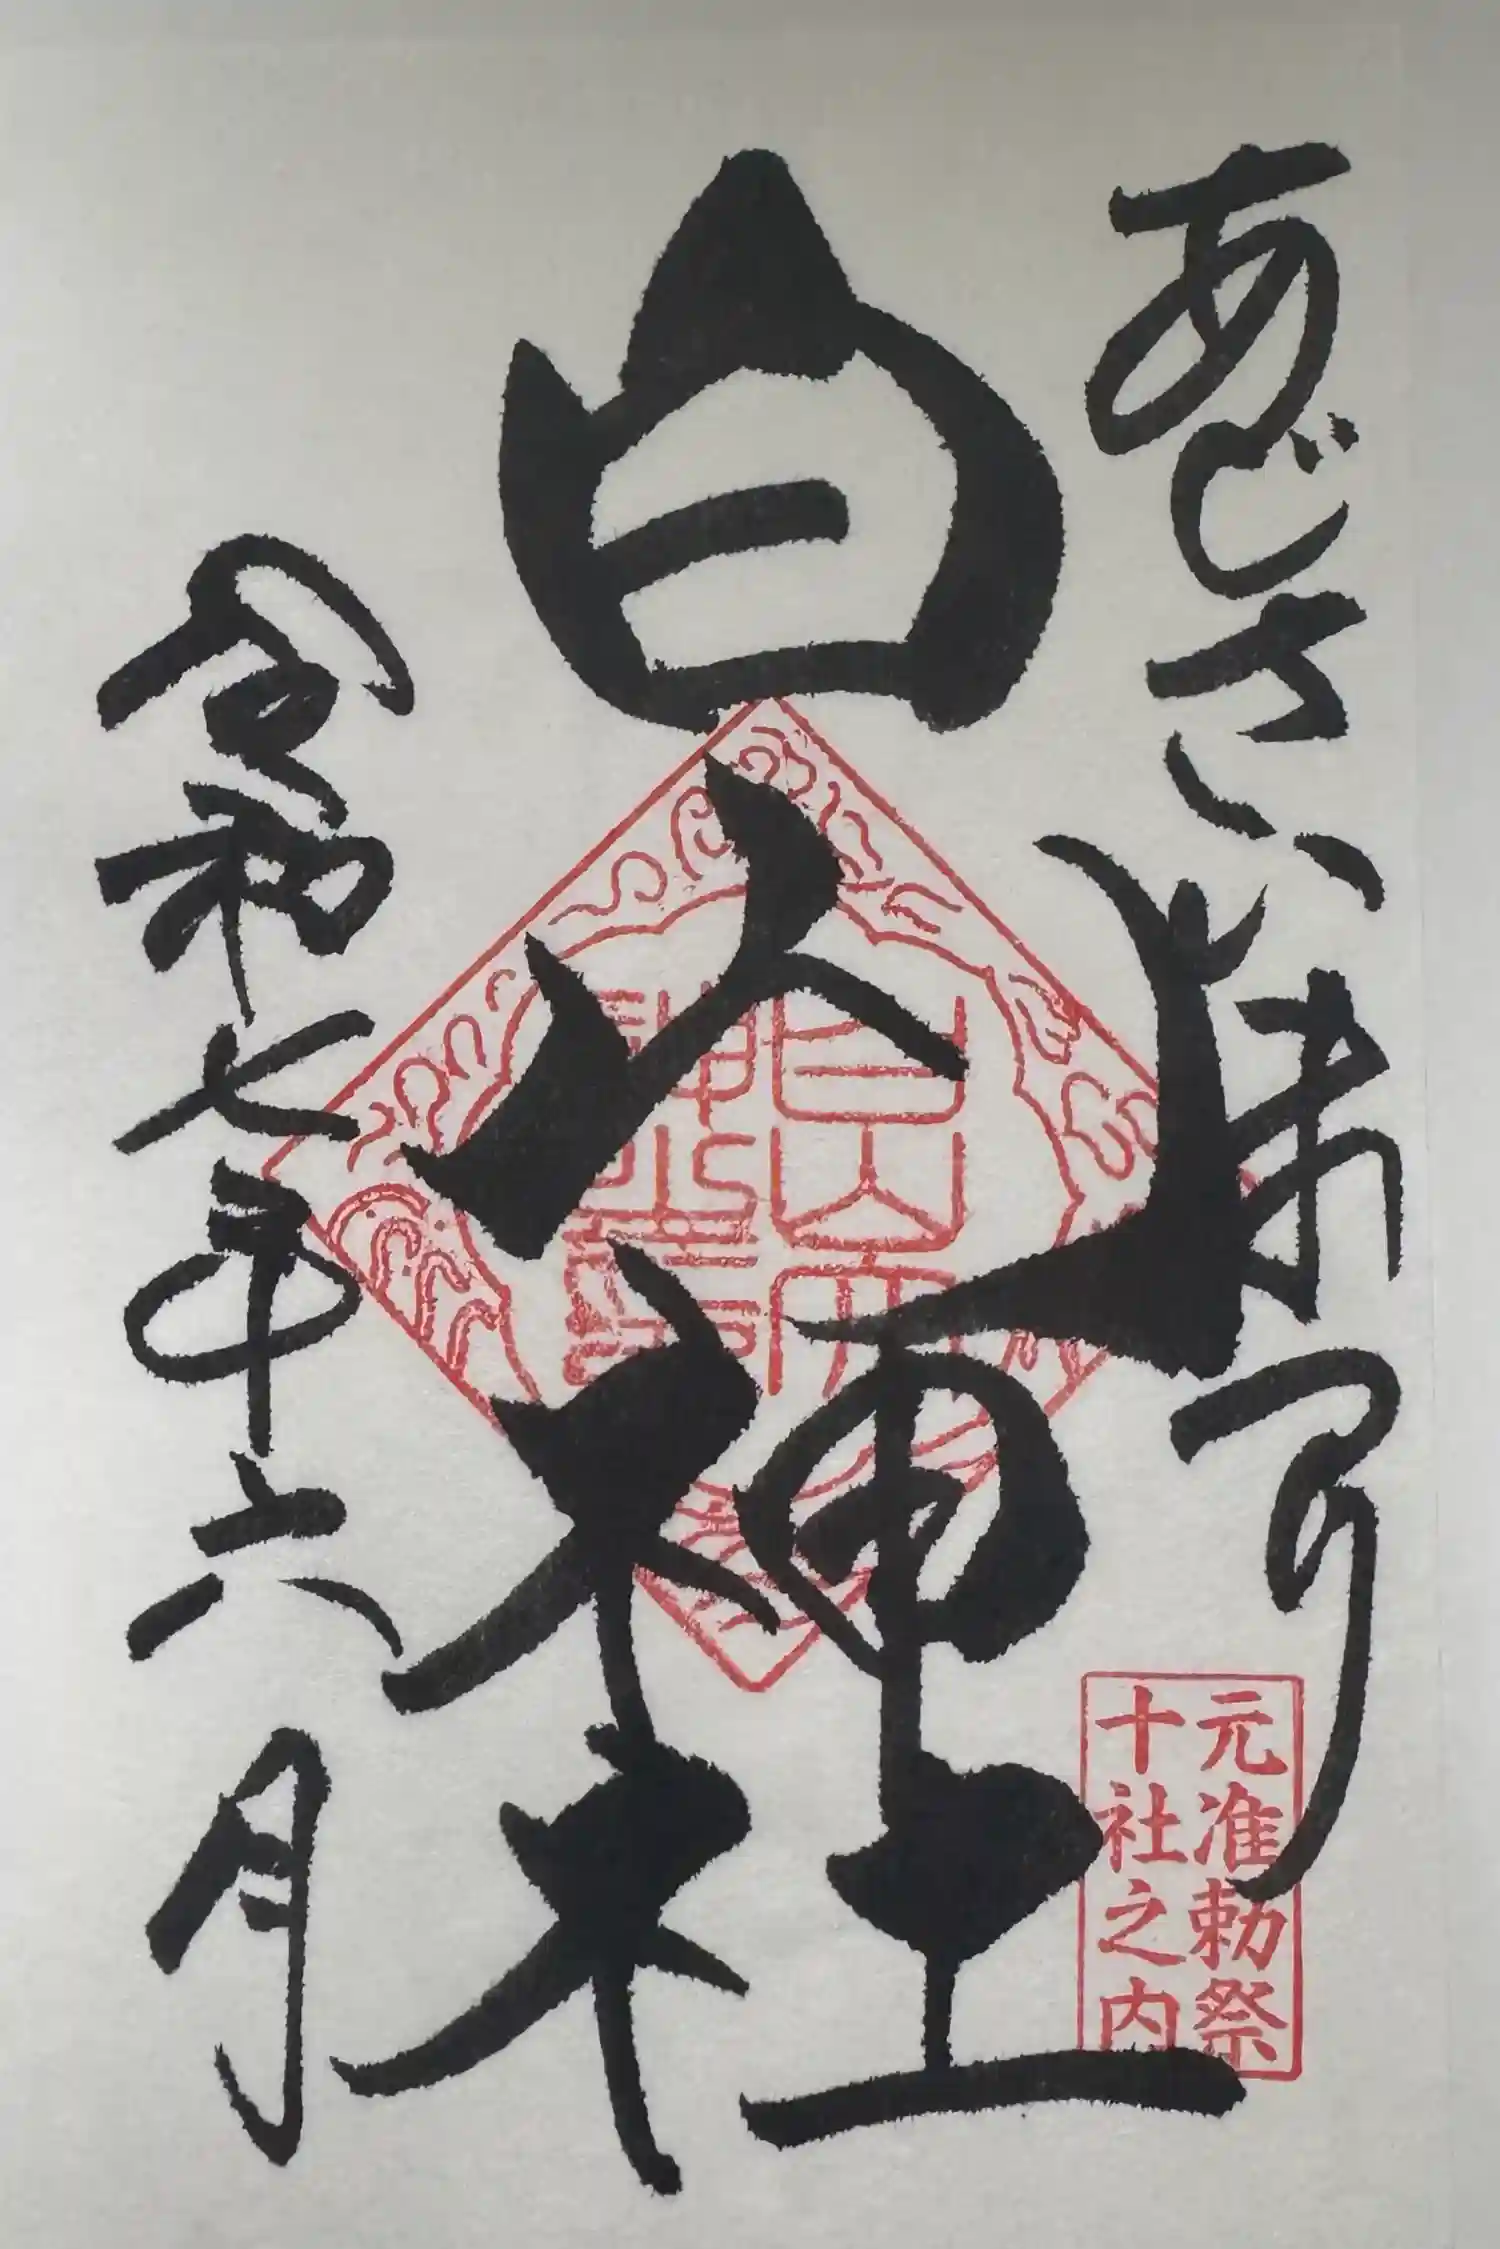 あじさいまつり
白山神社
令和七年六月
元准勅祭
十社之内
白山神社